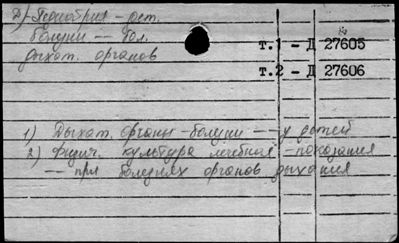 2) Педиатрия - дет.
болезни -- бол.
дыхат. органов
т.1 - Д 27605
т.2 - Д 27606
1) Дыхат. органы - болезни -- у детей
2) Физич. культура лечебная - показания
-- при болезнях органов дыхания